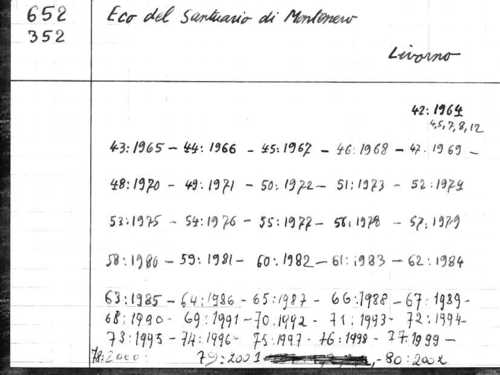 652
352
Eco del Santuario di Montenero
Livorno
42:1964
4,5,7,8,12
43:1965 – 44:1966 – 45:1967 – 46:1968 – 47:1969 –
48:1970 – 49:1971 – 50:1972 – 51:1973 – 52:1974
53:1975 – 54:1976 – 55:1977 – 56:1978 – 57:1979
58:1980 – 59:1981 – 60:1982 – 61:1983 – 62:1984
63:1985 – 64:1986 – 65:1987 – 66:1988 – 67:1989 –
68:1990 – 69:1991 – 70:1992 – 71:1993 – 72:1994 –
73:1995 – 74:1996 – 75:1997 – 76:1998 – 77:1999 –
78:2000: 79:2001 – 80:2002